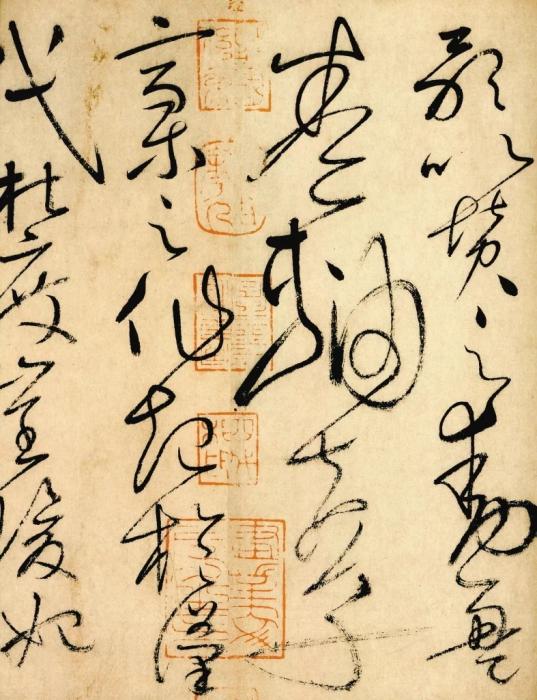 歌以賛之動盈
卷軸夫草
稾之作起於漢
代杜度崔瑗始